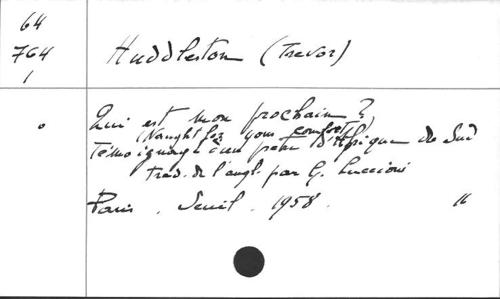 64
764
1
Huddleston (Trevor)
Qui est mon prochain ?
(Naught for your comfort)
Témoignage d'un père d'Afrique du Sud
trad. de l'angl. par G. Luccioni
Paris. Seuil. 1958.